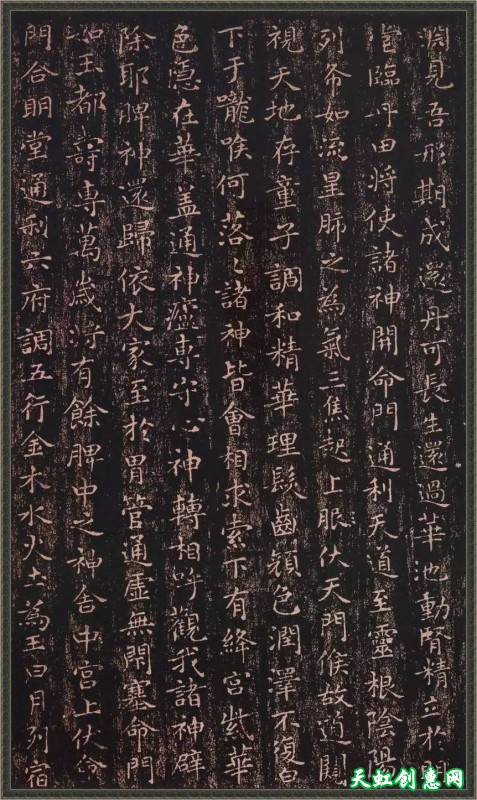 淵見吾形期成還丹可長生還過華池動腎精立於明
堂臨丹田將使諸神開命門通利天道至靈根陰陽
列布如流星肺之為氣三焦起上服伏天門候故道闚
視天地存童子調和精華理髮齒顏色潤澤不復白
下于嚨喉何落〻諸神皆會相求索下有絳宮紫華
色隱在華蓋通神廬專守心神轉相呼觀我諸神辟
除耶脾神還歸依大家至於胃管通虛無閉塞命門
如玉都壽專萬歲將有餘脾中之神舍中宮上伏命
門合明堂通利六府調五行金木水火土為王日月列宿
天虹创惠网